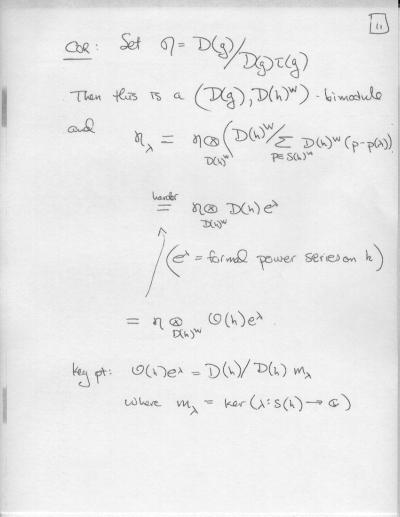 11
COR: Set η = D(g)/D(g)τ(g)
Then this is a (D(g), D(h)^W) - bimodule
and η_λ = η ⊗_{D(h)^W} (D(h)^W / Σ_{p∈S(h)^W} D(h)^W (p-p(λ))
harder
= η ⊗_{D(h)^W} D(h)e^λ
(e^λ = formal power series on h)
= η ⊗_{D(h)^W} O(h)e^λ
key pt: O(h)e^λ = D(h)/D(h) m_λ
where m_λ = ker(λ: S(h) → ℂ)